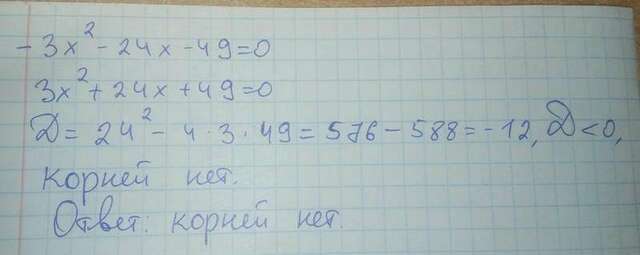 -3x²-24x-49=0
3x²+24x+49=0
D=24²-4·3·49=576-588=-12, D<0,
корней нет.
Ответ: корней нет.